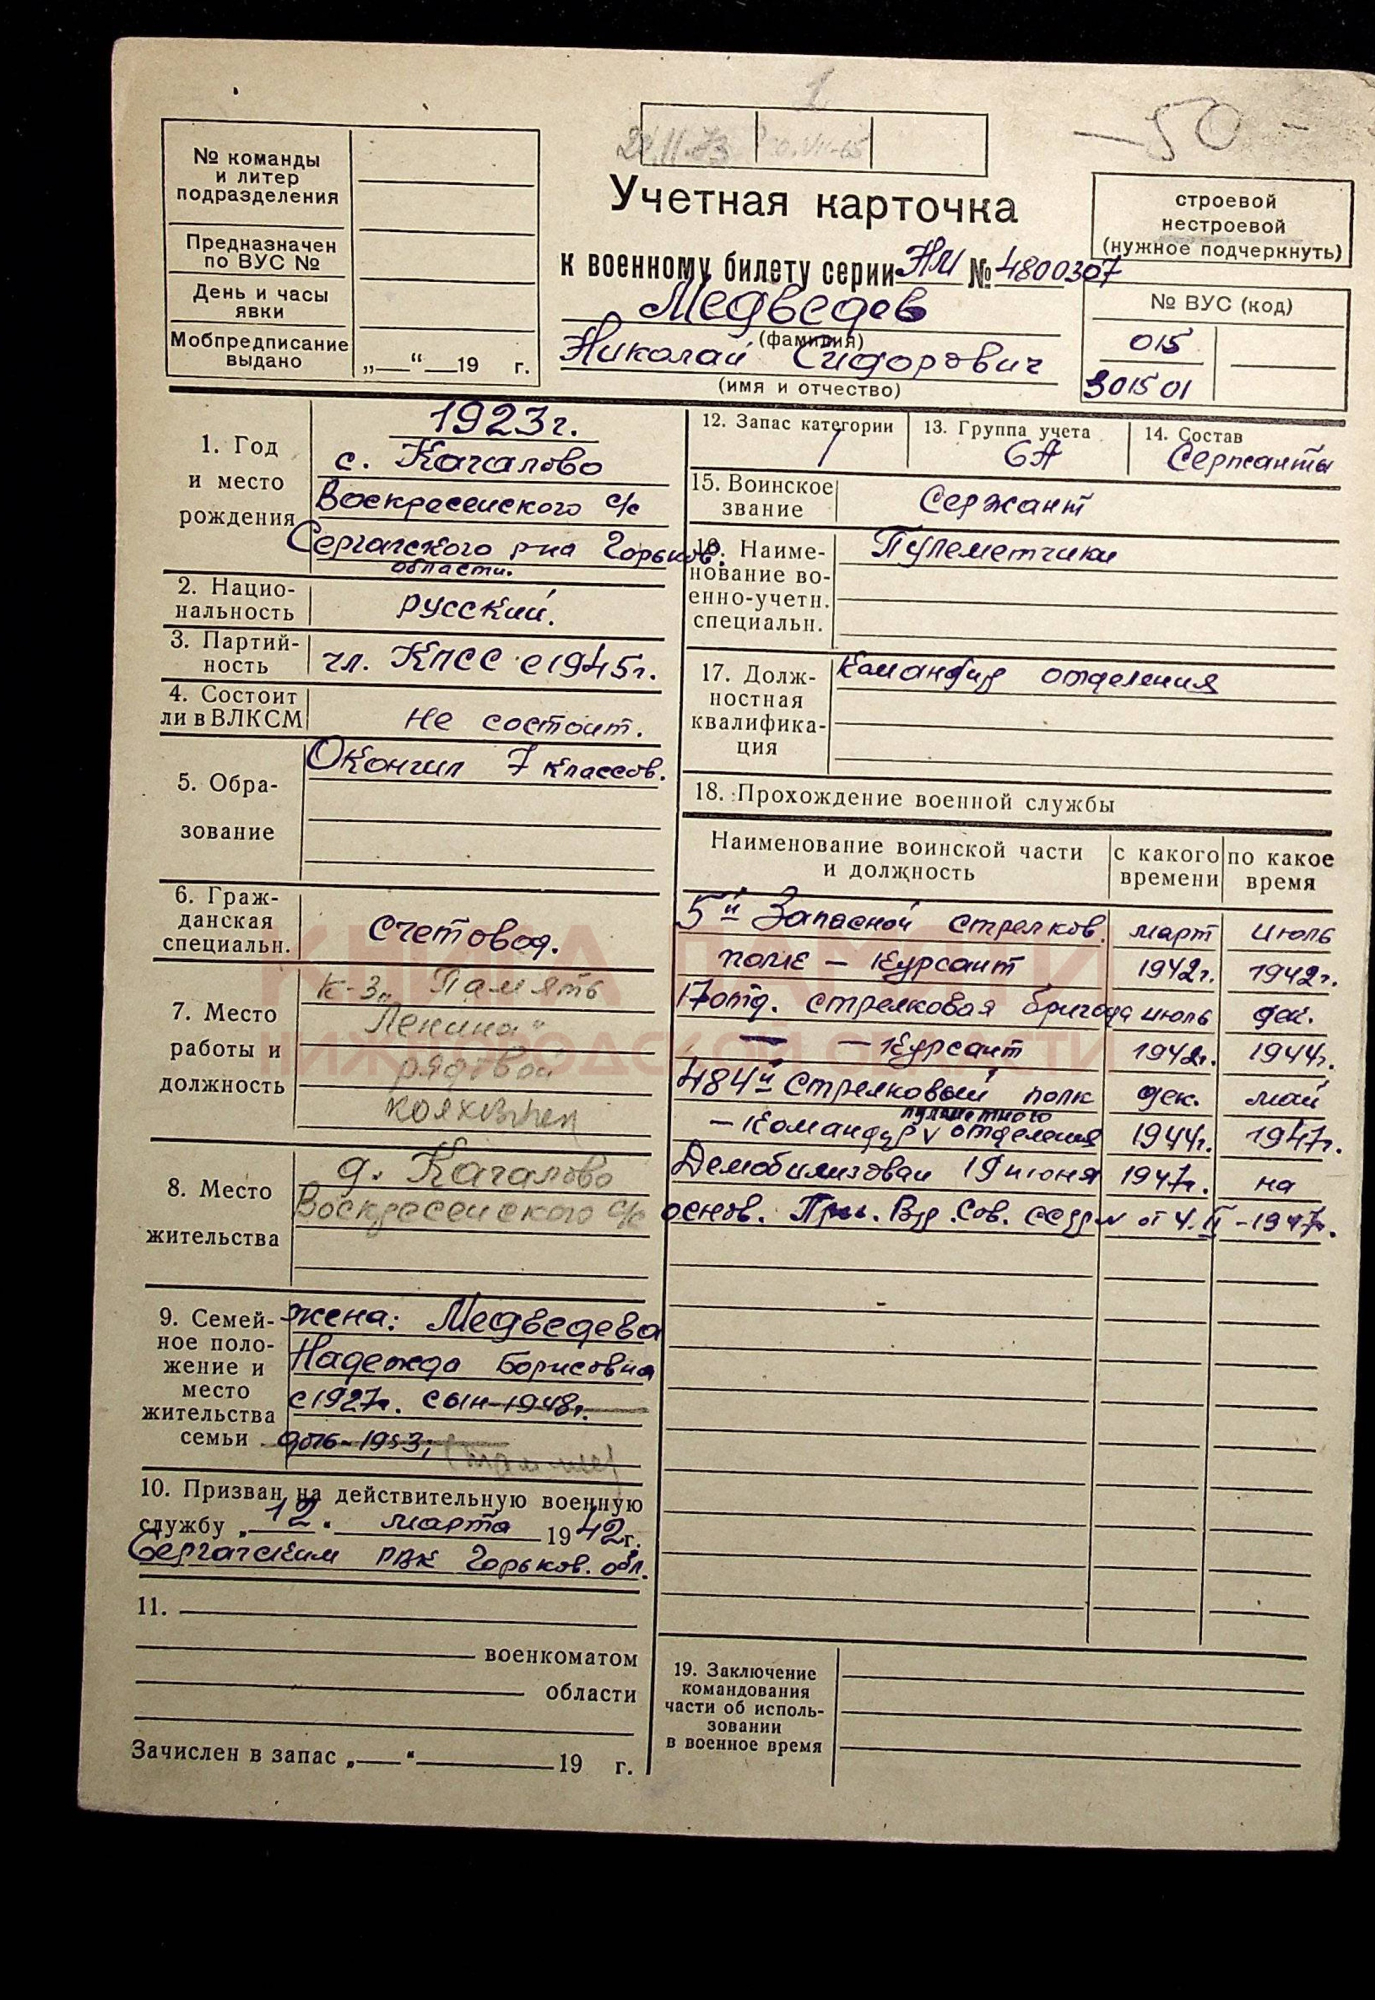 1
- 50 -
22.11.73
№ команды
и литер
подразделения
Предназначен
по ВУС №
День и часы
явки
Мобпредписание
выдано
„ “ 19 г.
Учетная карточка
к военному билету серии НМ № 4800307
Медведев
(фамилия)
Николай Сидорович
(имя и отчество)
строевой
нестроевой
(нужное подчеркнуть)
№ ВУС (код)
015
301501
1. Год
и место
рождения
1923г.
с. Качалово
Воскресенского с/с
Сергачского р-на Горьков.
области.
2. Нацио-
нальность
русский.
3. Партий-
ность
чл. КПСС с 1945г.
4. Состоит
ли в ВЛКСМ
Не состоит.
5. Обра-
зование
Окончил 7 классов.
6. Граж-
данская
специальн.
счетовод.
7. Место
работы и
должность
к-з „Память
Ленина“
рядовой
колхозник
8. Место
жительства
д. Качалово
Воскресенского с/с
9. Семей-
ное поло-
жение и
место
жительства
семьи
жена: Медведева
Надежда Борисовна
с 1927г. сын-1948г.
дочь-1953;
10. Призван на действительную военную
службу „12“ марта 1942г.
Сергачским РВК Горьков. обл.
11.
военкоматом
области
Зачислен в запас „ “ 19 г.
12. Запас категории
1
13. Группа учета
СА
14. Состав
Сержанты
15. Воинское
звание
Сержант
16. Наиме-
нование во-
енно-учетн.
специальн.
Пулеметчики
17. Долж-
ностная
квалифика-
ция
Командир отделения
18. Прохождение военной службы
Наименование воинской части
и должность
с какого
времени
по какое
время
5й Запасной стрелков. март июль
полк – курсант 1942г. 1942г.
17 отд. стрелковая бригада июль дек.
– Курсант 1942г. 1944г.
484й Стрелковый полк дек. май
пулеметного
– Командир v отделения 1944г. 1947г.
Демобилизован 19 июня 1947г. на
основ. Сов. от 4. II - 1947г.
19. Заключение
командования
части об исполь-
зовании
в военное время
КНИГА ПАМЯТИ
НИЖЕГОРОДСКОЙ ОБЛАСТИ